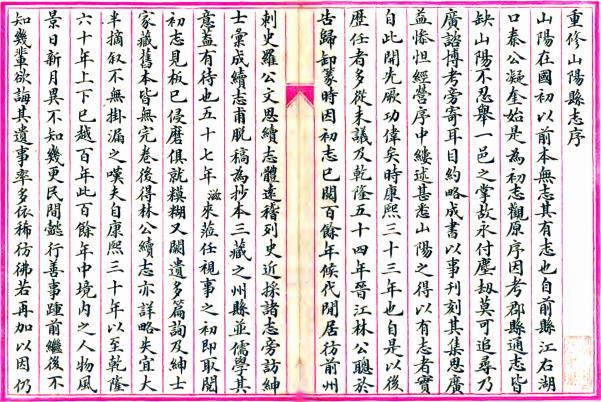 重修山陽縣志序
山陽在國初以前本無志其有志也自前縣江右湖
口秦公凝奎始是為初志觀原序因考郡縣通志皆
缺山陽不忍舉一邑之掌故永付塵刼莫可追尋乃
廣諮博考旁寄耳目約略成書以事刊刻其集思廣
益慘怛經營序中縷述甚悉山陽之得以有志者實
自此開先厥功偉矣時康熙三十三年也自是以後
歷任者多從未議及乾隆五十四年晉江林公聰於
告歸卸篆時因初志已閱百餘年候代閒居彷前州
刺史羅公文思續志體遠稽列史近採諸志旁訪紳
士彙成續志甫脫稿為抄本三藏之州縣並儒學其
意蓋有待也五十七年滋來蒞任視事之初即取閱
初志見板已侵磨俱就糢糊又闕遺多篇詢及紳士
家藏舊本皆無完卷後得林公續志亦詳略失宜大
半摘叙不無掛漏之嘆夫自康熙三十年以至乾隆
六十年上下已越百年此百餘年中境內之人物風
景日新月異不知幾更民間懿行善事踵前繼後不
知幾輩欲誨其遺事率多依稀彷彿若再加以因仍